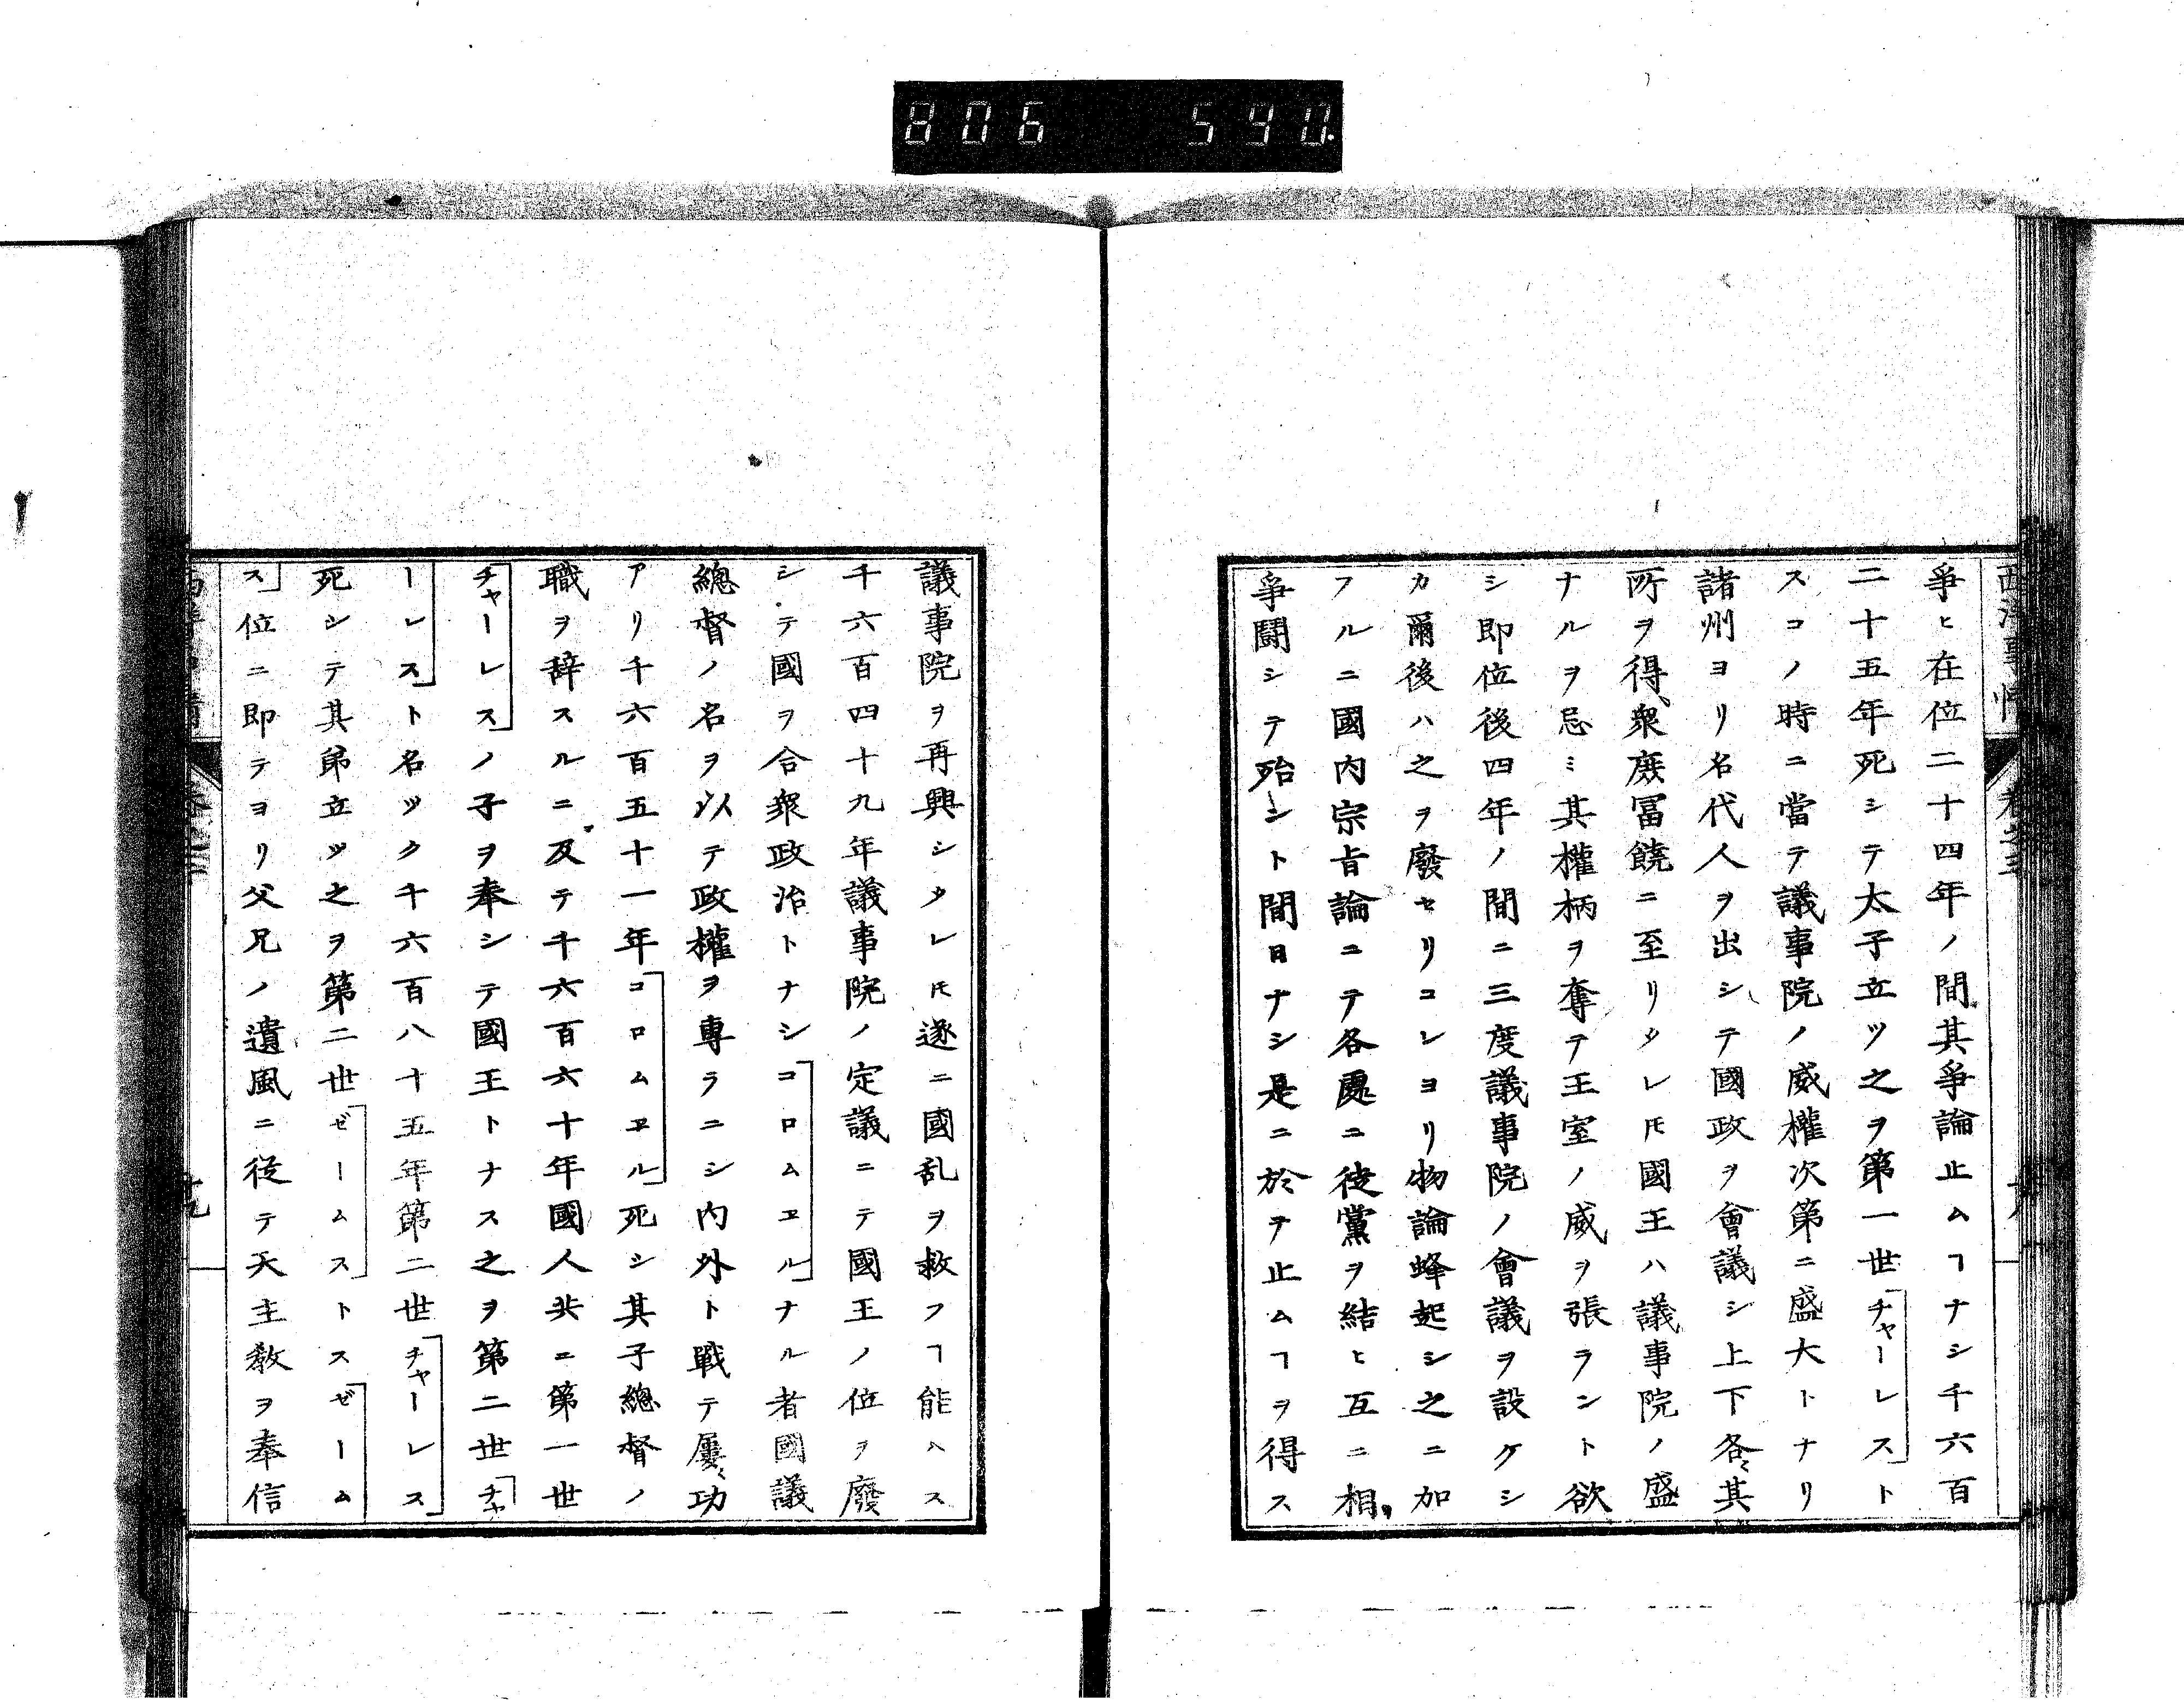 806 540
爭ヒ在位二十四年ノ間其爭論止ムヿナシ千六百
二十五年死シテ太子立ツ之ヲ第一世「チャーレス」ト
スコノ時ニ當テ議事院ノ威權次第ニ盛大トナリ
諸州ヨリ名代人ヲ出シテ國政ヲ會議シ上下各〻其
所ヲ得、衆庶冨饒ニ至リタレ𪜈國王ハ議事院ノ盛
ナルヲ忌ミ其權柄ヲ奪テ王室ノ威ヲ張ラント欲
シ即位後四年ノ間ニ三度議事院ノ會議ヲ設ケシ
カ爾後ハ之ヲ廢セリコレヨリ物論蜂起シ之ニ加
フルニ國内宗旨論ニテ各處ニ徒黨ヲ結ヒ互ニ相
爭鬪シテ殆ント間日ナシ是ニ於テ止ムヿヲ得ス
議事院ヲ再興シタレ𪜈遂ニ國乱ヲ救フヿ能ハス
千六百四十九年議事院ノ定議ニテ國王ノ位ヲ廢
シテ國ヲ合衆政治トナシ「コロムヱル」ナル者國議
總督ノ名ヲ以テ政權ヲ專ラニシ内外ト戰テ屢〻功
アリ千六百五十一年「コロムヱル」死シ其子總督ノ
職ヲ辞スルニ及テ千六百六十年國人共ニ第一世
「チャーレス」ノ子ヲ奉シテ國王トナス之ヲ第二世「チャ
ーレス」ト名ツク千六百八十五年第二世「チャーレス」
死シテ其弟立ツ之ヲ第二世「ゼームス」トス「ゼーム
ス」位ニ即テヨリ父兄ノ遺風ニ従テ天主教ヲ奉信